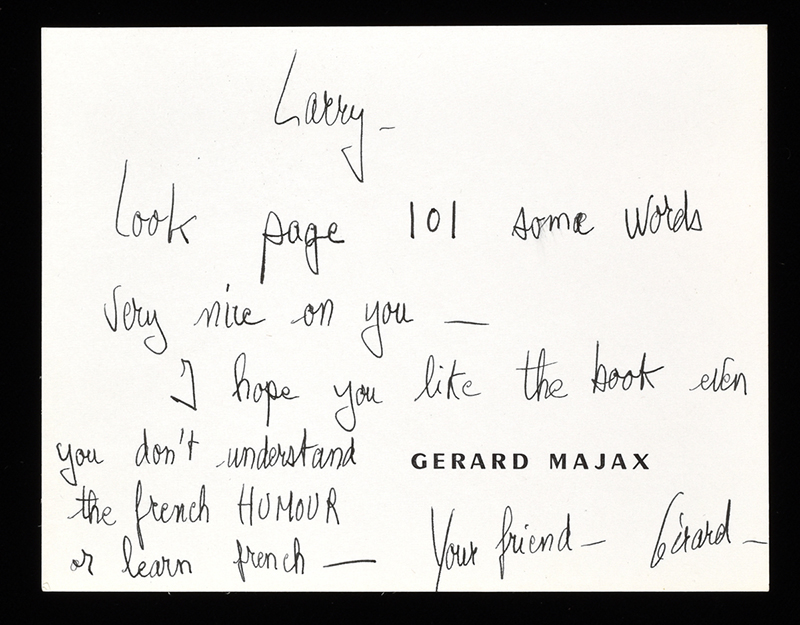 Larry –
Look page 101 some words
very nice on you —
I hope you like the book even
you don't understand
GERARD MAJAX
the french HUMOUR
or learn french —
Your friend – Gérard –